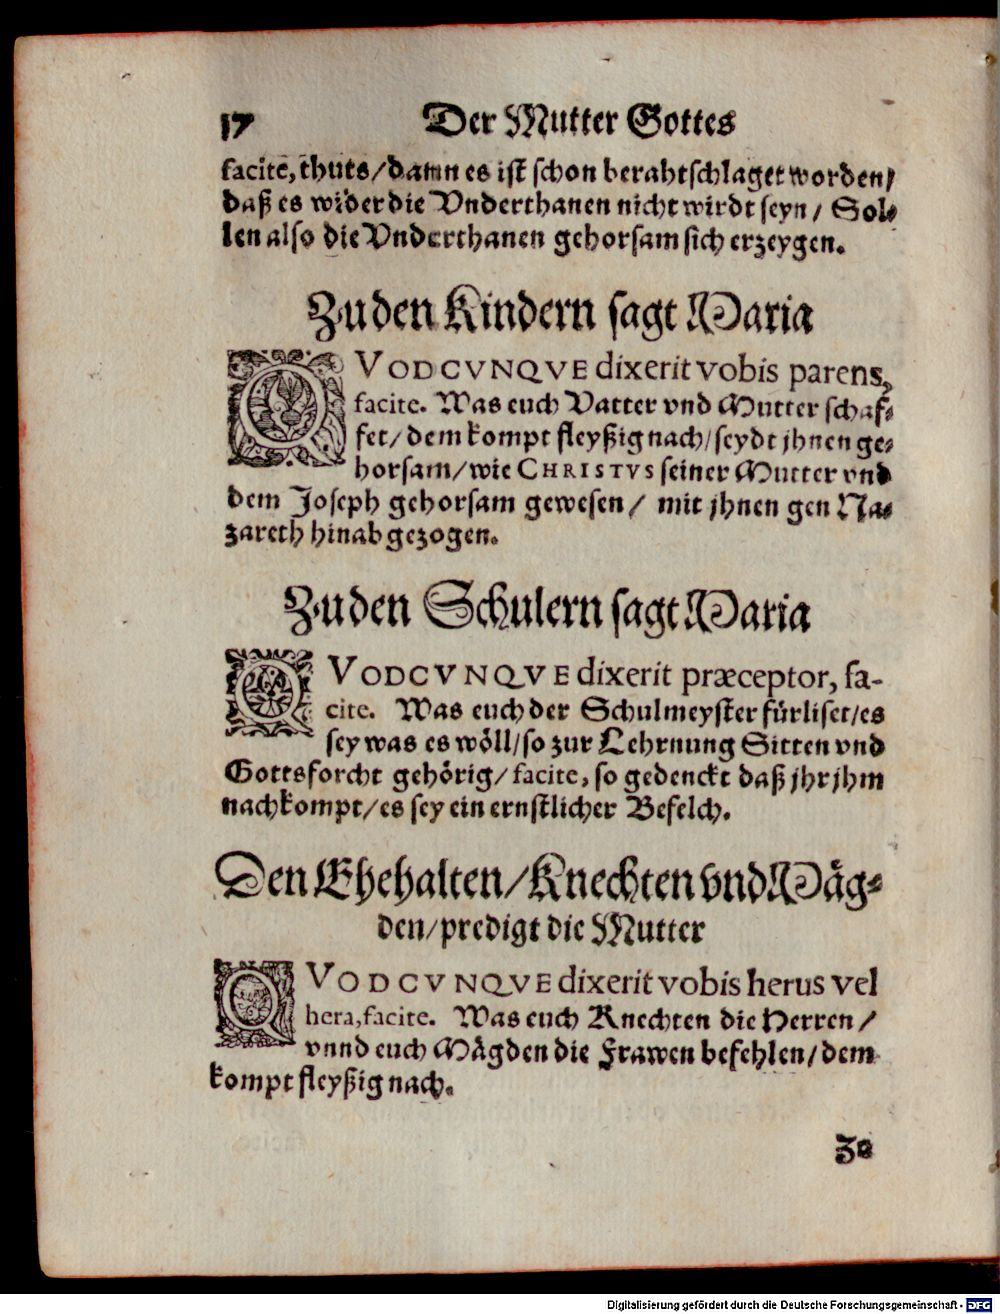 17 Der Mutter Gottes
facite, thuts/dann es ist schon berahtschlaget worden/
daß es wider die Vnderthanen nicht wirdt seyn/ Sol-
len also die Vnderthanen gehorsam sich erzeygen.
Zu den Kindern sagt Maria
QVODCVNQVE dixerit vobis parens,
facite. Was euch Vatter vnd Mutter schaf-
fet/ dem kompt fleyßig nach/ seydt jhnen ge-
horsam/ wie CHRISTVS seiner Mutter vnd
dem Joseph gehorsam gewesen/ mit jhnen gen Na-
zareth hinab gezogen.
Zu den Schulern sagt Maria
QVODCVNQVE dixerit præceptor, fa-
cite. Was euch der Schulmeyster fürliset/es
sey was es wöll/so zur Lehrnung Sitten vnd
Gottsforcht gehörig/ facite, so gedenckt daß jhr jhm
nachkompt/es sey ein ernstlicher Befelch.
Den Ehehalten/Knechten vnd Mäg-
den/predigt die Mutter
QVODCVNQVE dixerit vobis herus vel
hera, facite. Was euch Knechten die Herren/
vnnd euch Mägden die Frawen befehlen/dem
kompt fleyßig nach.
Zu
Digitalisierung gefördert durch die Deutsche Forschungsgemeinschaft - DFG